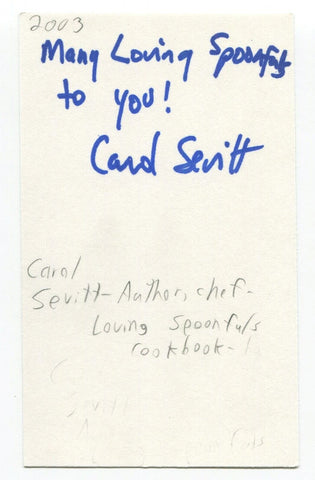 2003
Many Loving Spoonfuls
to you!
Carol Sevitt
Carol
Sevitt - Author, chef -
Loving Spoonfuls
cookbook -
Sevitt
A